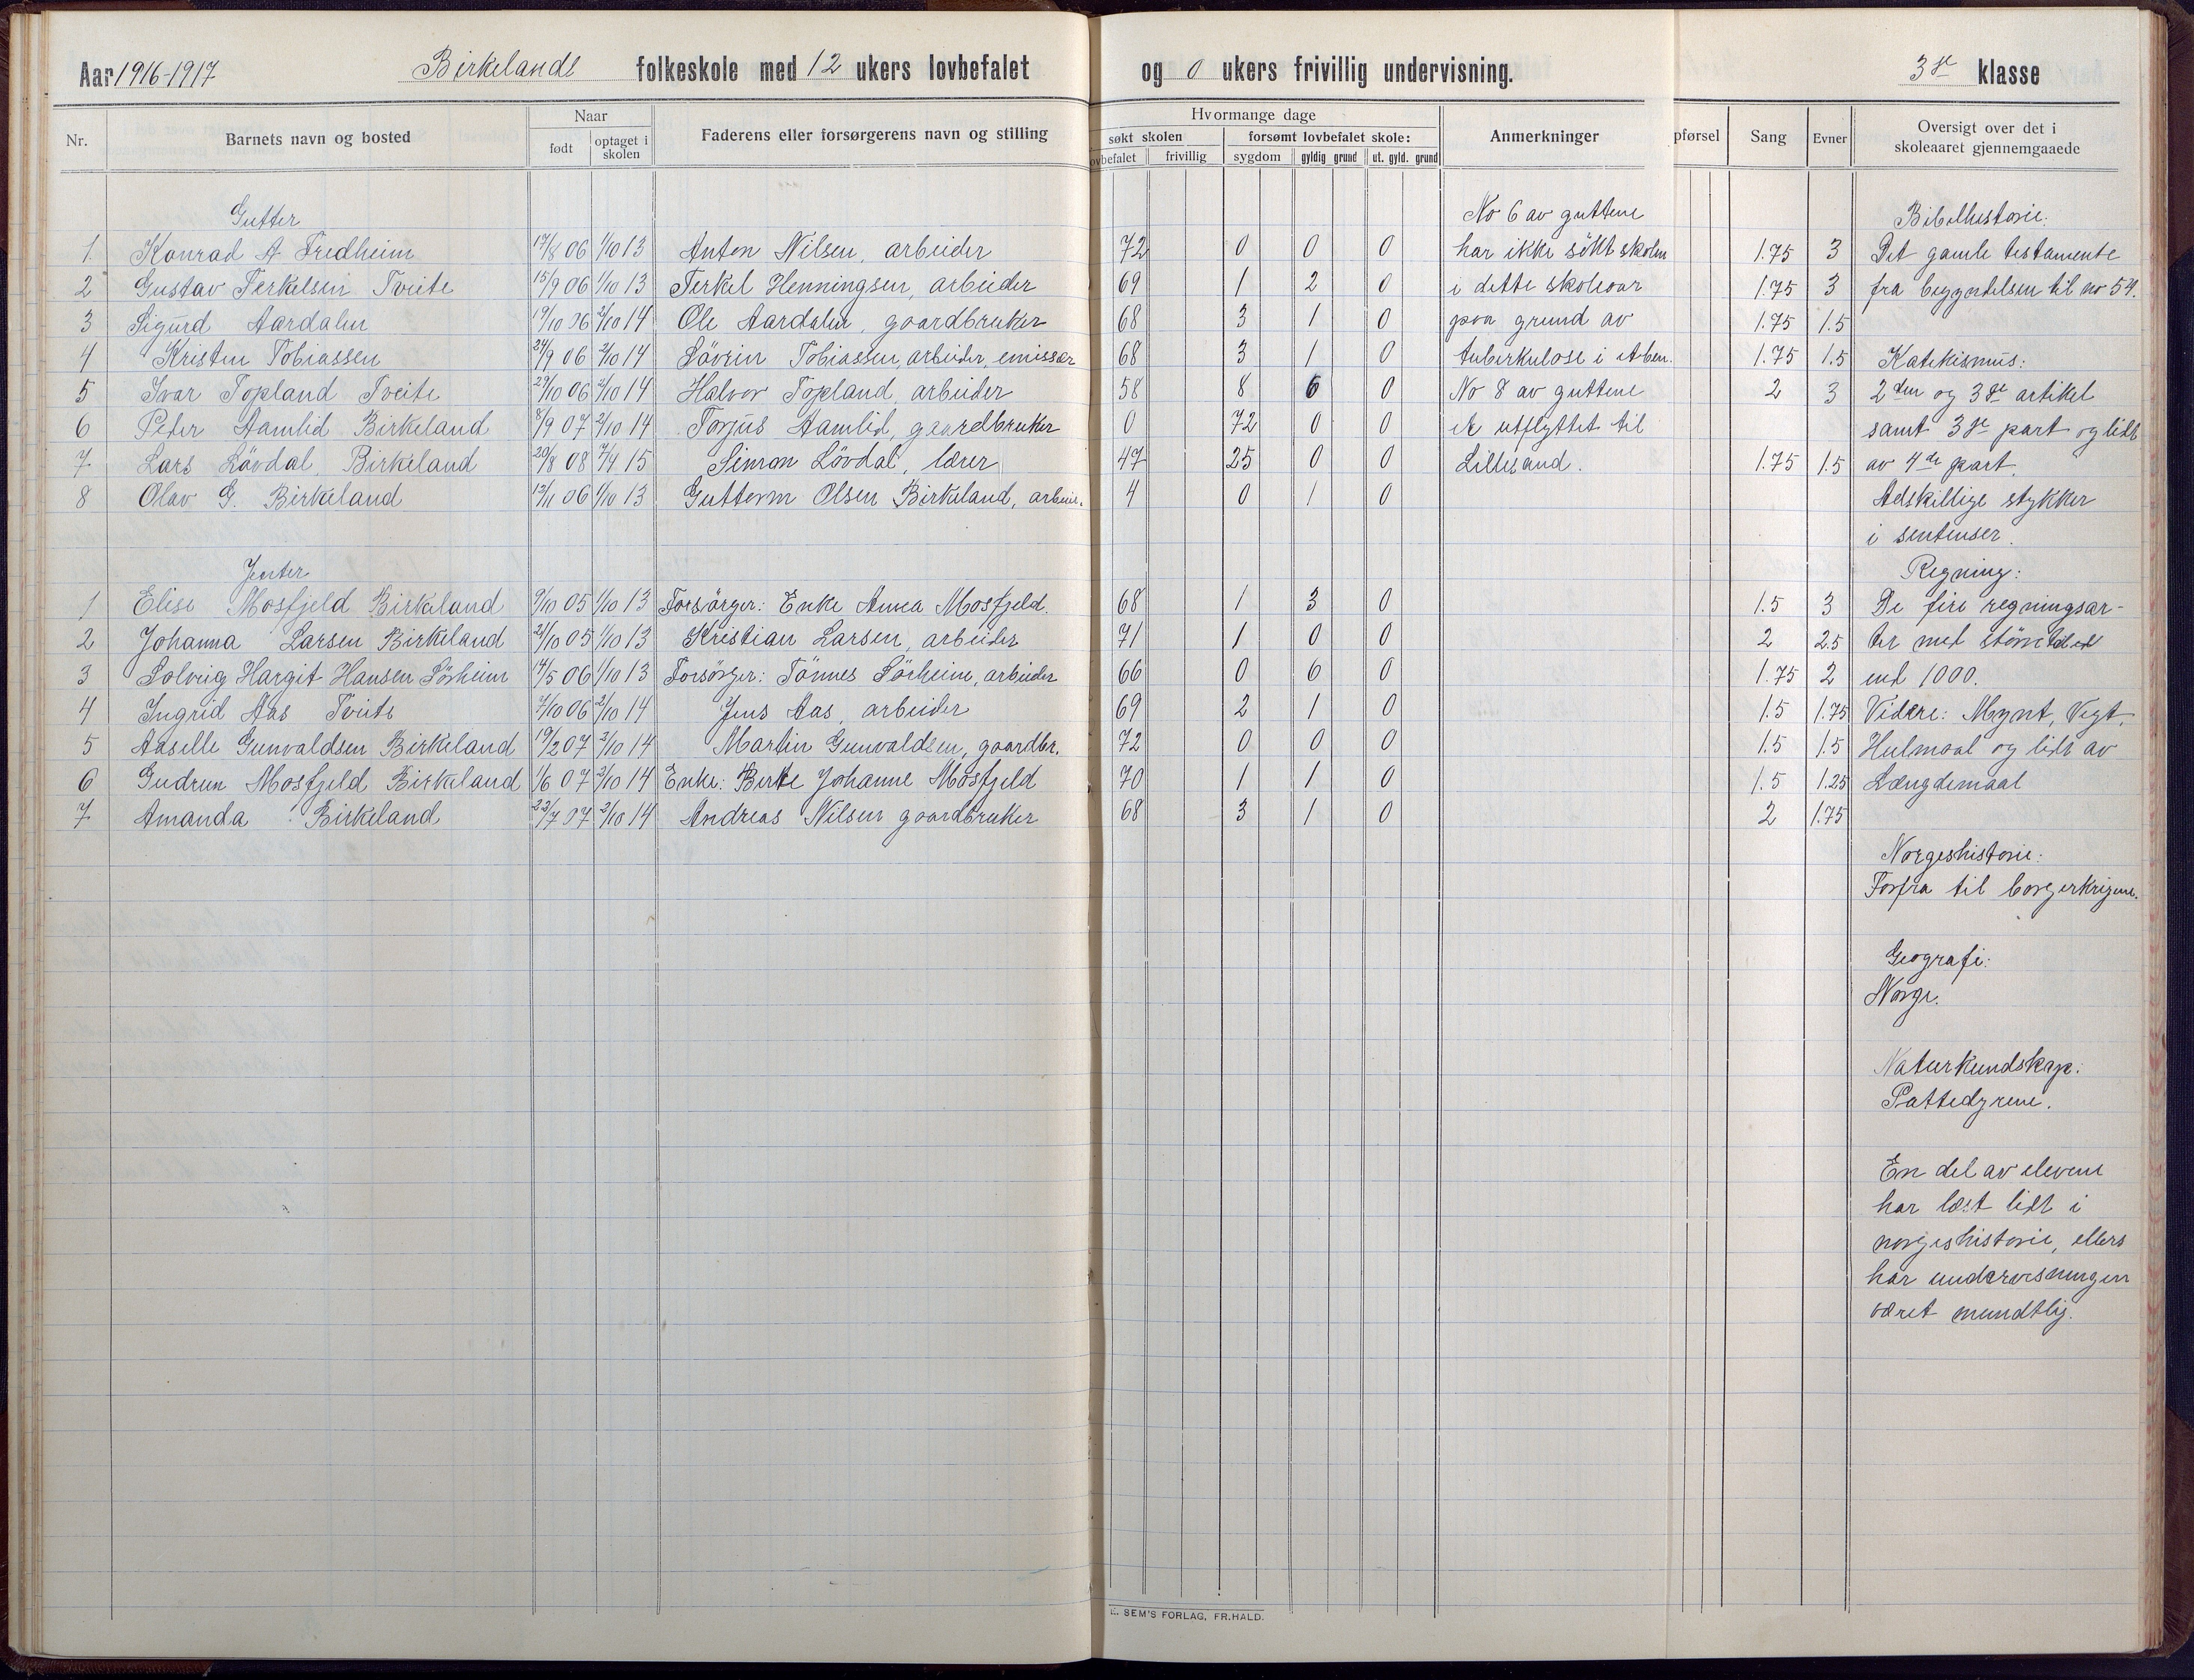 Aar 1916-1917 Birkelands folkeskole med 12 ukers lovbefalet og 0 ukers frivillig undervisning. 3dje klasse
Nr. Barnets navn og bosted Naar født optaget i skolen Faderens eller forsørgerens navn og stilling
Hvormange dage søkt skolen lovbefalet frivillig forsømt lovbefalet skole: sygdom gyldig grund ut. gyld. grund Anmerkninger
pførsel Sang Evner Oversigt over det i skoleaaret gjennemgaaede
Gutter
1 Konrad A. Fredheim 17/8 06 1/10 13 Anton Nilsen, arbeider 72 0 0 0 1.75 3
2 Gustav Terkelsen Tveite 15/9 06 1/10 13 Terkel Henningsen, arbeider 69 1 2 0 1.75 3
3 Sigurd Aardalen 19/10 06 2/10 14 Ole Aardalen, gaardbruker 68 3 1 0 1.75 1.5
4 Kristen Tobiassen 24/9 06 2/10 14 Lövrin Tobiassen, arbeider, emissær 68 3 1 0 1.75 1.5
5 Ivar Topland Tveite 29/10 06 2/10 14 Halvor Topland, arbeider 58 8 6 0 2 3
6 Peter Aamlid Birkeland 8/9 07 2/10 14 Torjus Aamlid, gaardbruker 0 72 0 0
7 Lars Lövdal Birkeland 20/8 08 7/4 15 Simon Lövdal, lærer 47 25 0 0 1.75 1.5
8 Olav G. Birkeland 12/11 06 1/10 13 Guttorm Olsen Birkeland, arbeid. 4 0 1 0
Jenter
1 Elise Mosfjeld Birkeland 9/10 05 1/10 13 Forsörger: Enke Anna Mosfjeld. 68 1 3 0 1.5 3
2 Johanna Larsen Birkeland 21/10 05 1/10 13 Kristian Larsen, arbeider 71 1 0 0 2 2.5
3 Solveig Hargit Hansen Sörheim 14/5 06 1/10 13 Forsörger: Tönnes Sörheim, arbeider 66 0 6 0 1.75 2
4 Ingrid Aas Tveite 7/10 06 2/10 14 Jens Aas, arbeider 69 2 1 0 1.5 1.75
5 Aaselle Gunvaldsen Birkeland 19/2 07 2/10 14 Martin Gunvaldsen, gaardbr. 72 0 0 0 1.5 1.5
6 Gudrun Mosfjeld Birkeland 1/6 07 2/10 14 Enke: Berte Johanne Mosfjeld 70 1 1 0 1.5 1.25
7 Amanda Birkeland 22/7 07 2/10 14 Andreas Nilsen gaardbruker 68 3 1 0 2 1.75
No 6 av guttene
har ikke søkt skolen
i dette skoleaar
paa grund av
tuberkulose i
No 8 av guttene
er utflyttet til
Lillesand.
Bibelhistorie:
Det gamle testamente
fra begyndelsen til no 54.
Katekismus:
2den og 3dje artikel
samt 3dje part og lidt
av 4de part.
Adskillige stykker
i sentenser.
Regning:
De fire regningsar-
ter med större tal
end 1000.
Videre: Mynt, Vegt,
Hulmaal og lidt av
Længdemaal
Norgeshistorie:
Forfra til borgerkrigene.
Geografi:
Norge.
Naturkundskap:
Pattedyrene.
En del av elevene
har læst lidt i
norgeshistorie, ellers
har undervisningen
været mundtlig.
E. SEM'S FORLAG, FR.HALD.